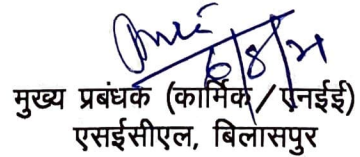 6/8/21
मुख्य प्रबंधक (कार्मिक/एनईई)
एसईसीएल, बिलासपुर